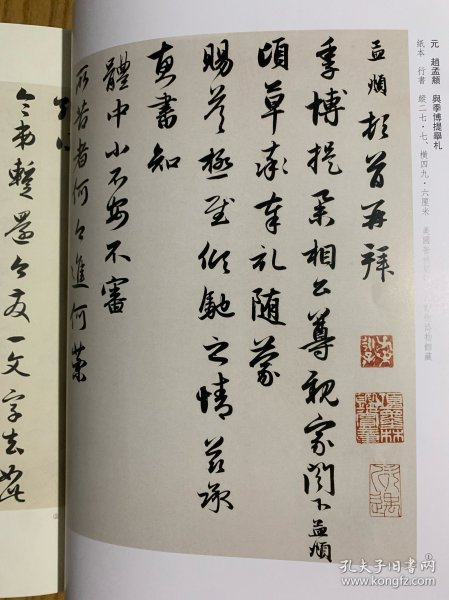 元　趙孟頫　與季博提舉札
紙本　行書　縱二七·七、橫四九·六厘米　美國普林斯頓大學藝術博物館藏
孟頫頓首再拜
季博提舉相公尊親家閣下孟頫
頃草率奉札隨蒙
賜答極至傾馳之情茲承
惠書知
體中小不安不審
所苦者何如進何藥
今
一文字去
①
②
孔夫子旧书网
www.kongfz.com